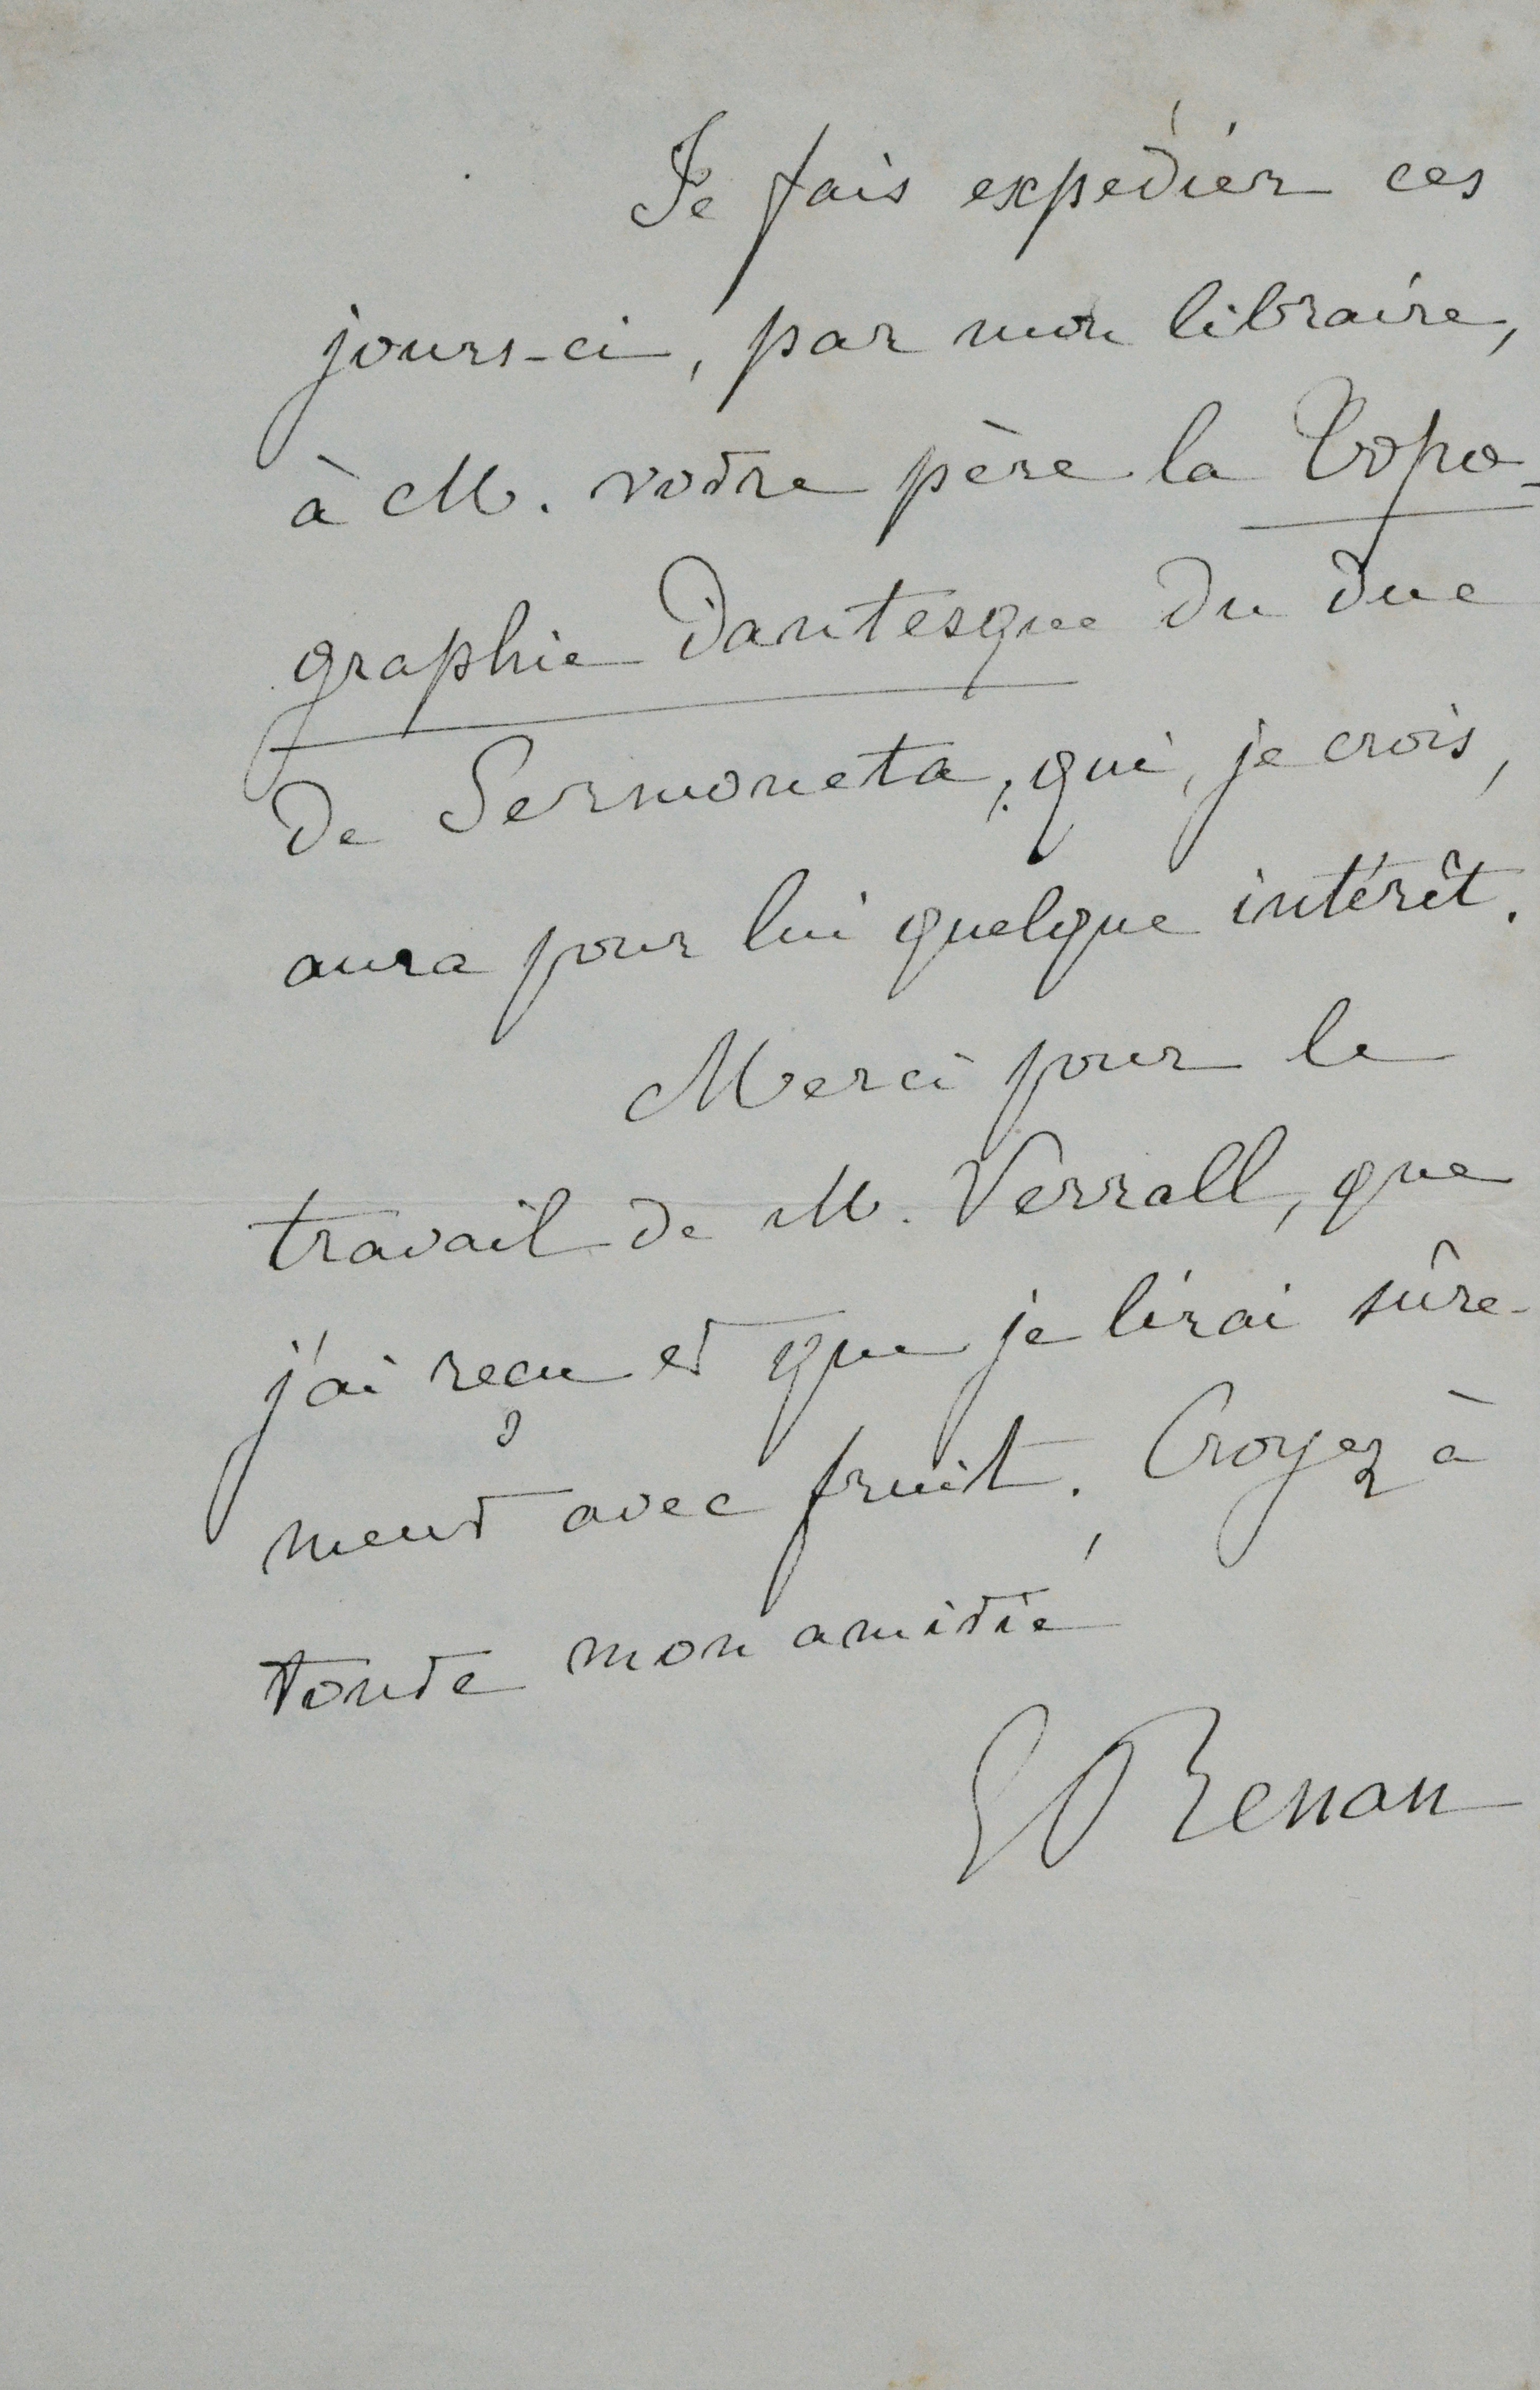 Je fais expédier ces
jours-ci, par mon libraire,
à M. votre père la Topo-
graphie Dantesque du duc
de Sermoneta, qui, je crois,
aura pour lui quelque intérêt.
Merci pour le
travail de M. Verrall, que
j'ai reçu et que je lirai sûre-
ment avec fruit. Croyez à
toute mon amitié
E Renan